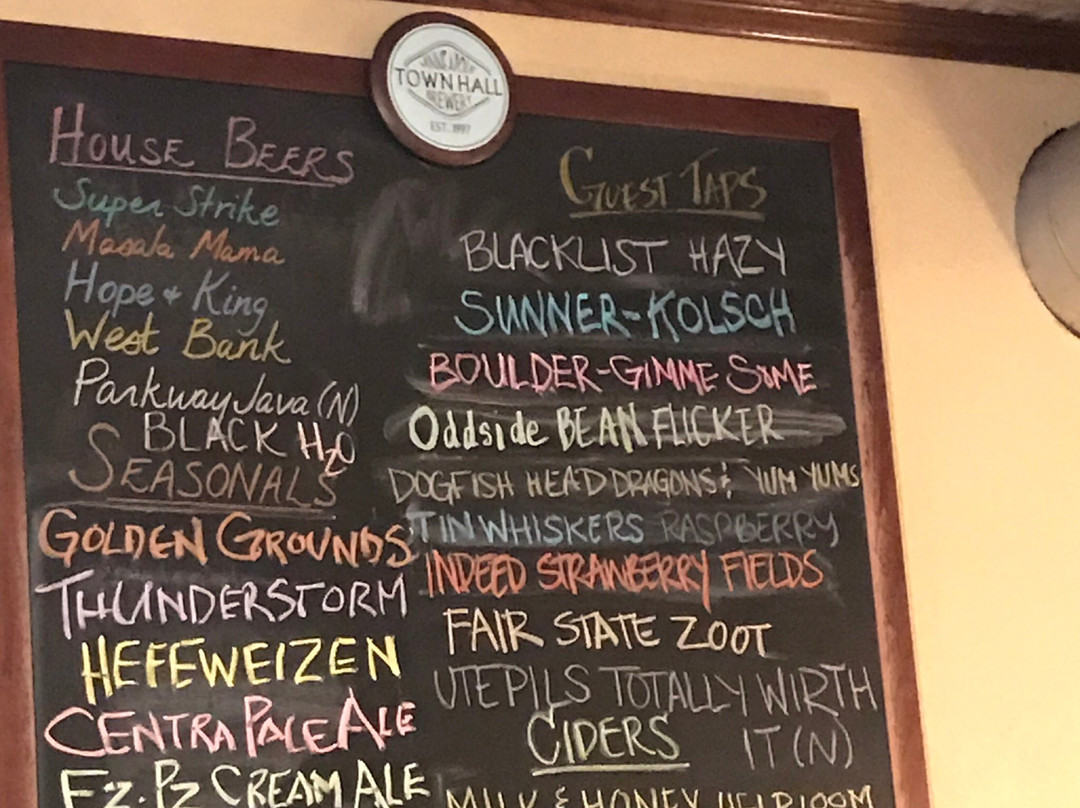 MINNEAPOLIS
TOWN HALL
BREWERY
EST. 1997
HOUSE BEERS
Super Strike
Masala Mama
Hope + King
West Bank
Parkway Java (N)
BLACK H2O
SEASONALS
GOLDEN GROUNDS
THUNDERSTORM
HEFEWEIZEN
CENTRA PALE ALE
EZ. PZ CREAM ALE
GUEST TAPS
BLACKLIST HAZY
SUNNER-KOLSCH
BOULDER-GIMME SOME
Oddside BEAN FLICKER
DOGFISH HEAD DRAGONS & YUM YUMS
TIN WHISKERS RASPBERRY
INDEED STRAWBERRY FIELDS
FAIR STATE ZOOT
UTEPILS TOTALLY WIRTH
IT (N)
CIDERS
MILK & HONEY HEIRLOOM